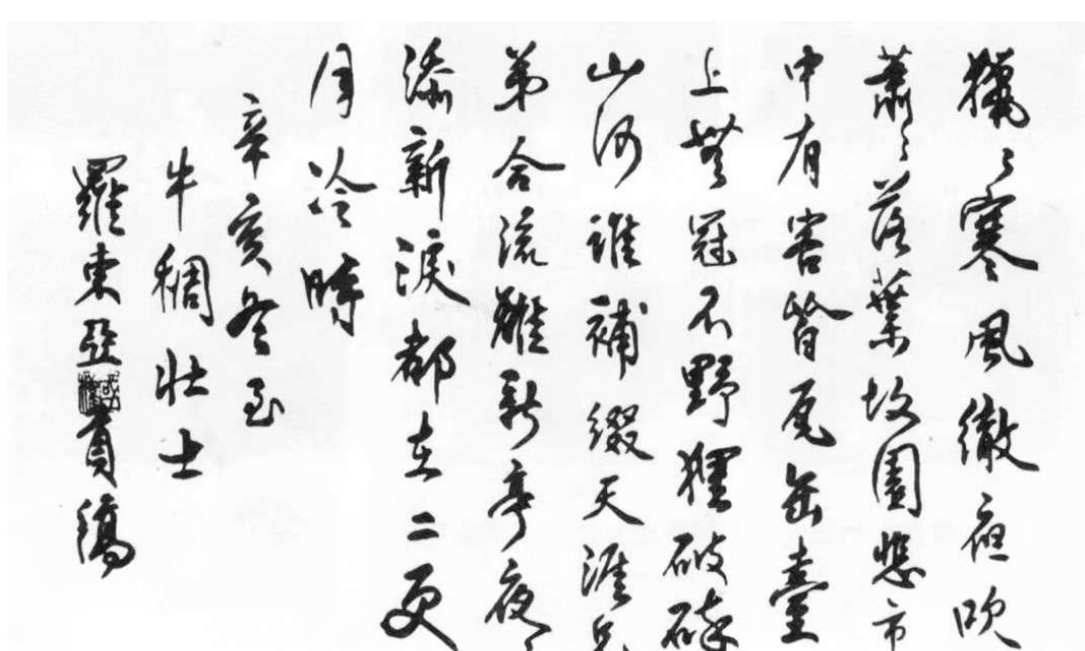 獵〻寒風徹夜吹
蕭〻落葉故園悲市
中有害皆瓦缶臺
上無冠不野狸破碎
山河誰補綴天涯兄
弟合流離新亭夜〻
添新淚都在二更
月冷時
辛亥冬至
牛稠壯士
羅東亞